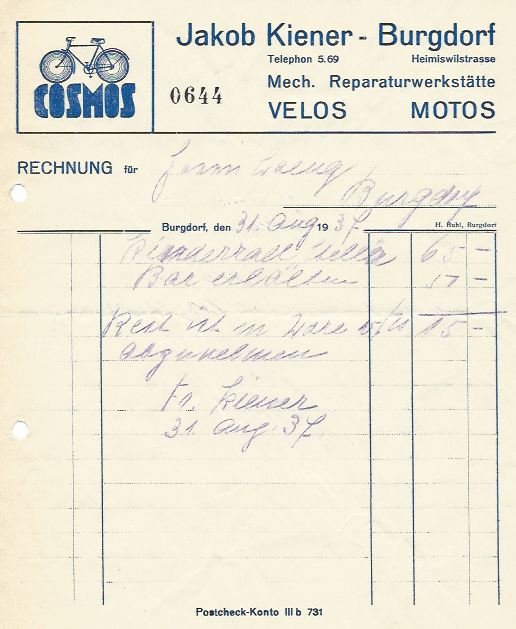 COSMOS
0644
Jakob Kiener - Burgdorf
Telephon 5.69 Heimiswilstrasse
Mech. Reparaturwerkstätte
VELOS MOTOS
RECHNUNG für
Burgdorf
Burgdorf, den 31. Aug 1937.
H. Buhl, Burgdorf
65 –
Bar erhalten –
Rest ist in Ware 15 –
abzunehmen
Fr. Kiener
31. Aug. 37.
Postcheck-Konto III b 731